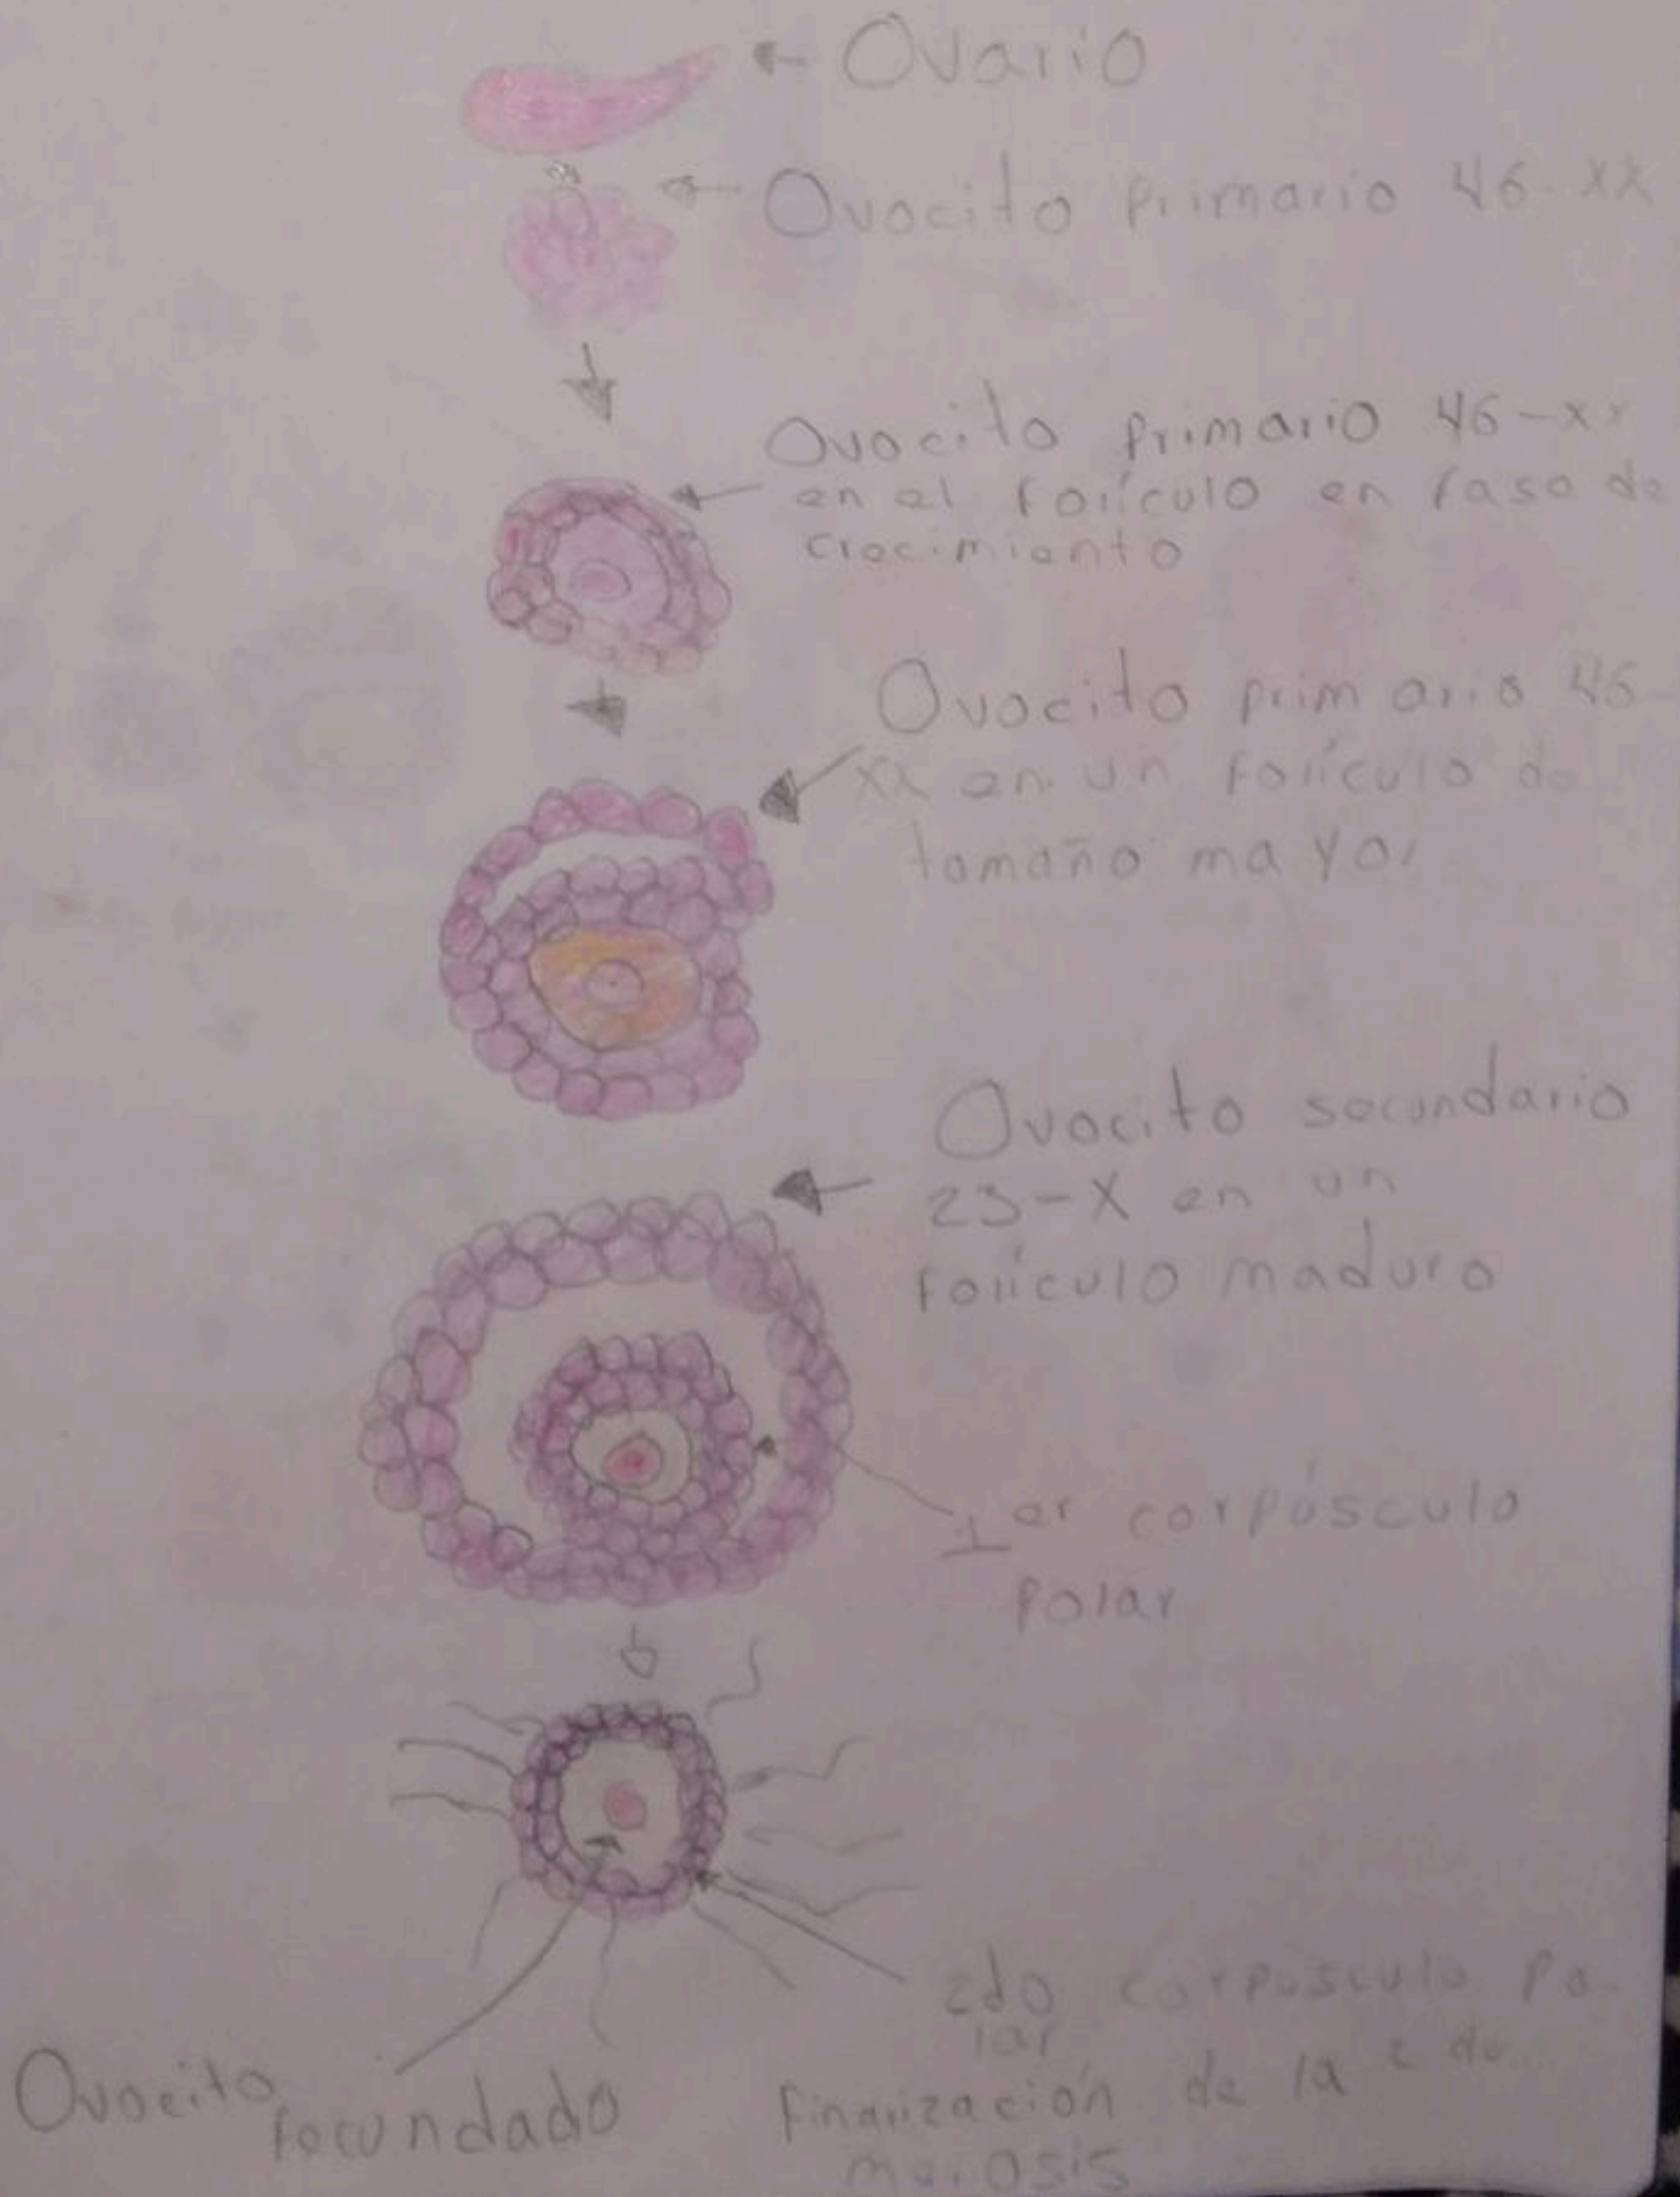 Ovario
Ovocito primario 46-XX
Ovocito primario 46-XX
en el folículo en fase de
crecimiento
Ovocito primario 46
XX en un folículo de
tamaño mayor
Ovocito secundario
23-X en un
folículo maduro
1er corpúsculo
polar
2do corpusculo po-
lar
Ovocito
fecundado
finalización de la 2da
meiosis